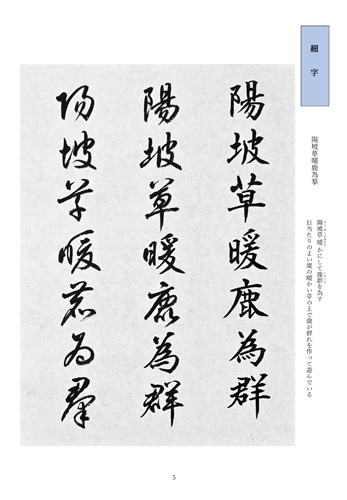 細字
陽坡草暖鹿為羣
陽坡草 暖かにして鹿群を為す
日当たりのよい堤の暖かい草の上で鹿が群れを作って遊んでいる
陽坡草暖鹿為群
陽坡草暖鹿為群
陽坡草暖鹿為羣
5